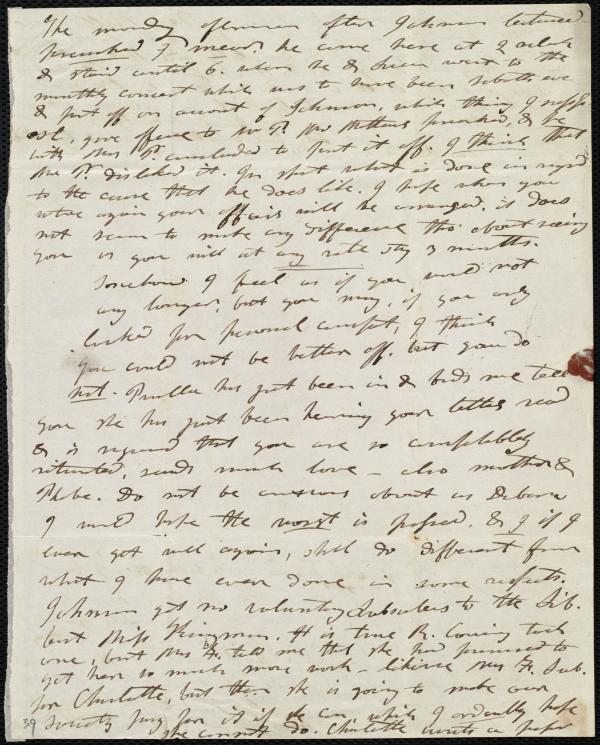 The monday afternoon after Johnson lectured
preached I mean, he came here at 2 oclock
& staid until 6. when he & Susan went to the
monthly concert which was to have been
& put off on account of Johnson, which thing I suppose
give offence to Mr P. Mr preached, & he
with Mrs P. concluded to put it off. I think that
Mr P. disliked it. In short what is done in regard
to the cause that he does like. I hope when you
write again your affairs will be arranged. it does
not seem to make any difference tho' about seeing
you as you will at any rate stay 3 months.
Somehow I feel as if you would not
any longer, but you may, if you only
looked for personal comfort, I think
you could not be better off. but you do
not. has just been in & bids me tell
you she has just been hearing your letter read
& is rejoiced that you are so comfortably
situated, sends much love - also mother &
Phebe. Do not be anxious about us Debora
I would hope the worst is passed. & I if I
ever get well again, shall do different from
what I have ever done in some respects.
Johnson got no voluntary subscribers to the Lib.
but Miss Kingman. It is true R. took
one, but Mrs F. told me that she had promised to
get her so much more work - likewise Mrs F. sub.
for Charlotte, but then she is going to make our
society pay for it if she can, which I ardently hope
she cannot do. Charlotte wants a paper
39